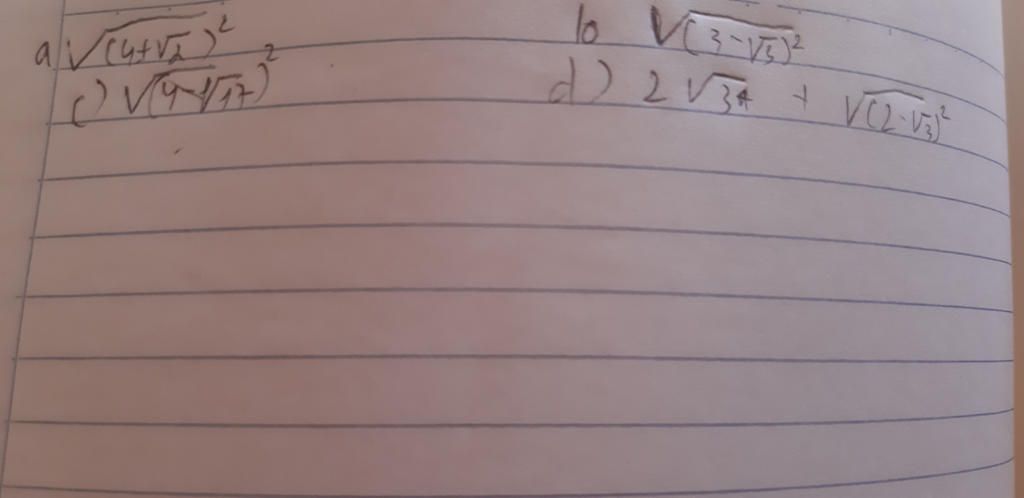 a √(4+√2)² b √(3-√3)²
c) √(4-√17)² d) 2√3 + √(2-√3)²